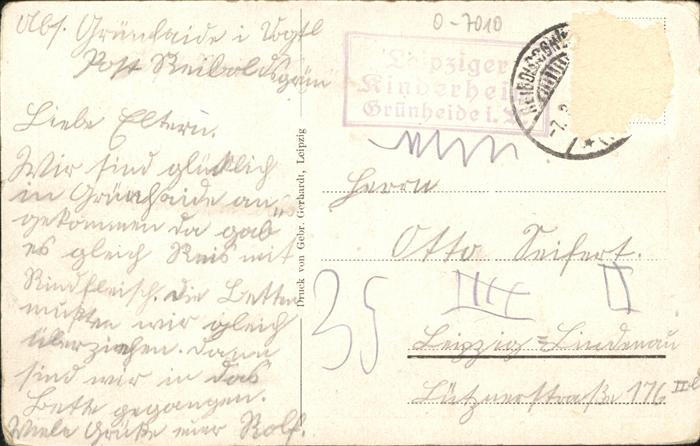 O-7010
Abs. Grünhaide i Vogtl
Post Reiboldsgrün
Leipziger
Kinderheim
Grünheide i. V.
REIBOLDSGRÜN
Liebe Eltern.
Wir sind glücklich
in Grünhaide an-
gekommen da gab
es gleich Reis mit
Rindfleisch. die Betten
mußten wir gleich
überziehen. Dann
sind wir in das
Bette gegangen.
Viele Grüße euer Rolf.
Druck von Gebr. Gerhardt, Leipzig
Herrn
Otto Seifert.
35 III II
Leipzig=Lindenau
Lütznerstraße 176 II